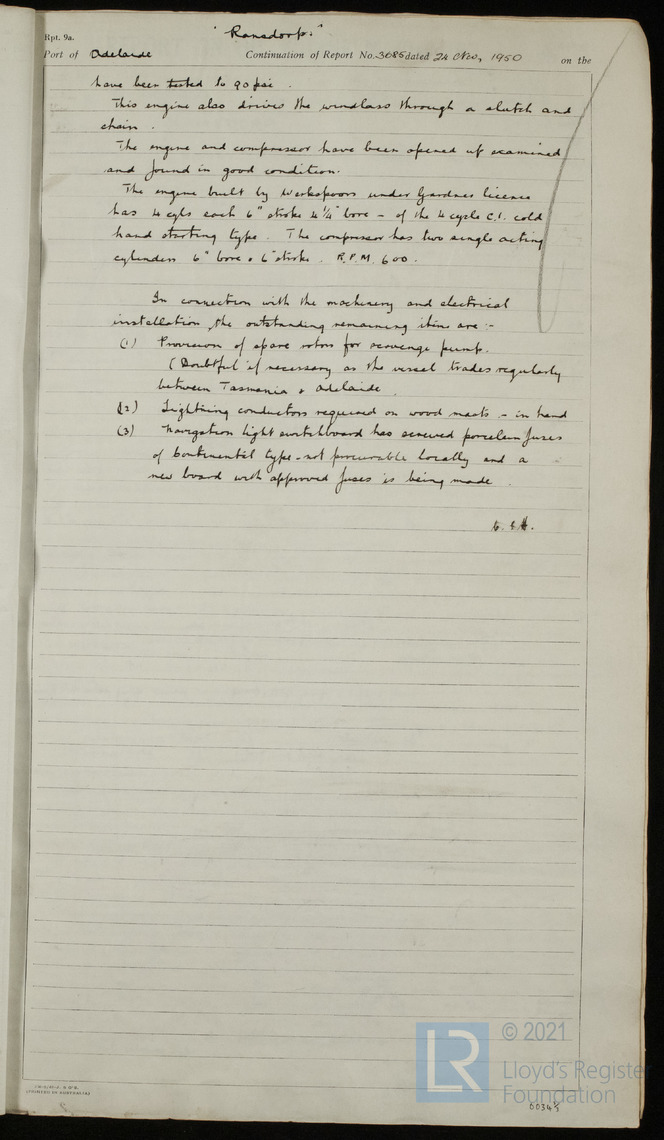 "Ransdorp."
Rpt. 9a.
Port of Adelaide Continuation of Report No. 3685 dated 24 Nov, 1950 on the
have been tested to 90 psi.
This engine also drives the windlass through a clutch and
chain.
The engine and compressor have been opened up examined
and found in good condition.
The engine built by Werkspoors under Gardner licence
has 4 cyls each 6" stroke 4¼" bore - of the 4 cycle C.I. cold
hand starting type. The compressor has two single acting
cylinders 6" bore & 6" stroke. R.P.M. 600.
In connection with the machinery and electrical
installation, the outstanding remaining items are:-
(1) Provision of spare rotors for scavenge pump.
(Doubtful if necessary as the vessel trades regularly
between Tasmania & Adelaide
(2) Lightning conductors required on wood masts - in hand
(3) Navigation light switchboard has screwed porcelain fuses
of Continental type - not procurable locally and a
new board with approved fuses is being made.
(PRINTED IN AUSTRALIA)
LR
© 2021
Lloyd's Register
Foundation